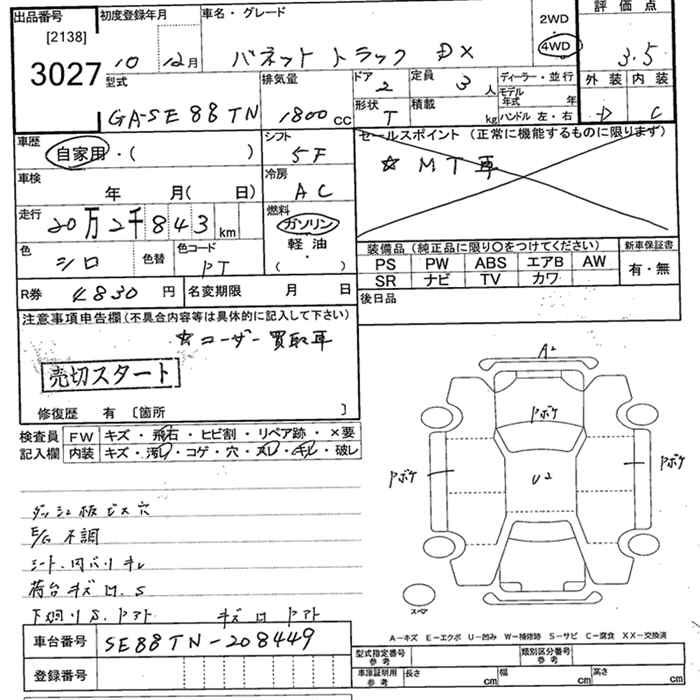 出品番号 初度登録年月 車名・グレード 2WD 評価点
[2138] 10 12月 バネット トラック DX 4WD 3.5
3027 型式 排気量 ドア 定員 ディーラー・並行 外装 内装
GA-SE88TN 1800cc 2 3人 モデル年式 年 D C
形状 T 積載 kg ハンドル 左・右
車歴 自家用・( ) シフト 5F セールスポイント (正常に機能するものに限ります)
☆ MT車
車検 年 月( 日) 冷房 AC
走行 20万2千843km 燃料 ガソリン
軽油
( )
色 シロ 色替 色コード PT
装備品 (純正品に限り○をつけてください) 新車保証書
PS PW ABS エアB AW 有・無
SR ナビ TV カワ
R券 4830円 名変期限 月 日 後日品
注意事項申告欄 (不具合内容等は具体的に記入して下さい)
☆ユーザー買取車
売切スタート
修復歴 有 〔箇所 〕
検査員 FW キズ・飛石・ヒビ割・リペア跡・×要
記入欄 内装 キズ・汚レ・コゲ・穴・スレ・キレ・破レ
A2
Pボケ
Pボケ U2 Pボケ
ダッシュ板ビス穴
E/G不調
シート・内バリキレ
荷台キズ凹.S
下廻りS.
キズ凹
スペア
A-キズ E-エクボ U-凹み W-補修跡 S-サビ C-腐食 XX-交換済
車台番号 SE88TN-208449 型式指定番号 参考 類別区分番号 参考
登録番号 車庫証明用 参考 長さ cm 幅 cm 高さ cm